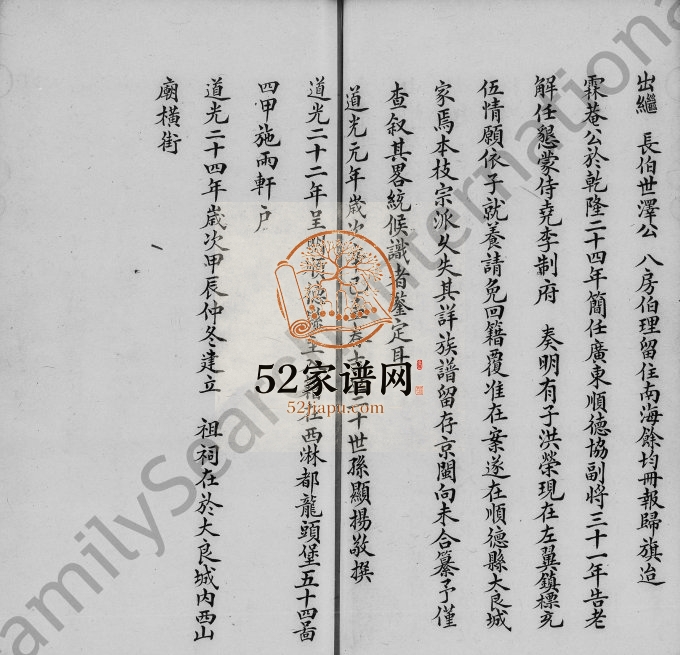 出繼 長伯世澤公 八房伯理留住南海餘均冊報歸旗迨
霖菴公於乾隆二十四年簡任廣東順德協副將三十一年告老
解任懇蒙侍堯李制府 奏明有子洪榮現在左翼鎮標充
伍情願依子就養請免回籍覆准在案遂在順德縣大良城
家焉本枝宗派久失其詳族譜留存京閩向未合纂予僅
查叙其畧統候識者鑒定耳
道光元年歲次辛巳 十世孫顯揚敬撰
道光二十二年呈 順德 在西淋都龍頭堡五十四啚
四甲施雨軒戶
道光二十四年歲次甲辰仲冬建立 祖祠在於大良城內西山
廟橫街
52家谱网
52jiapu.com
FamilySearch International